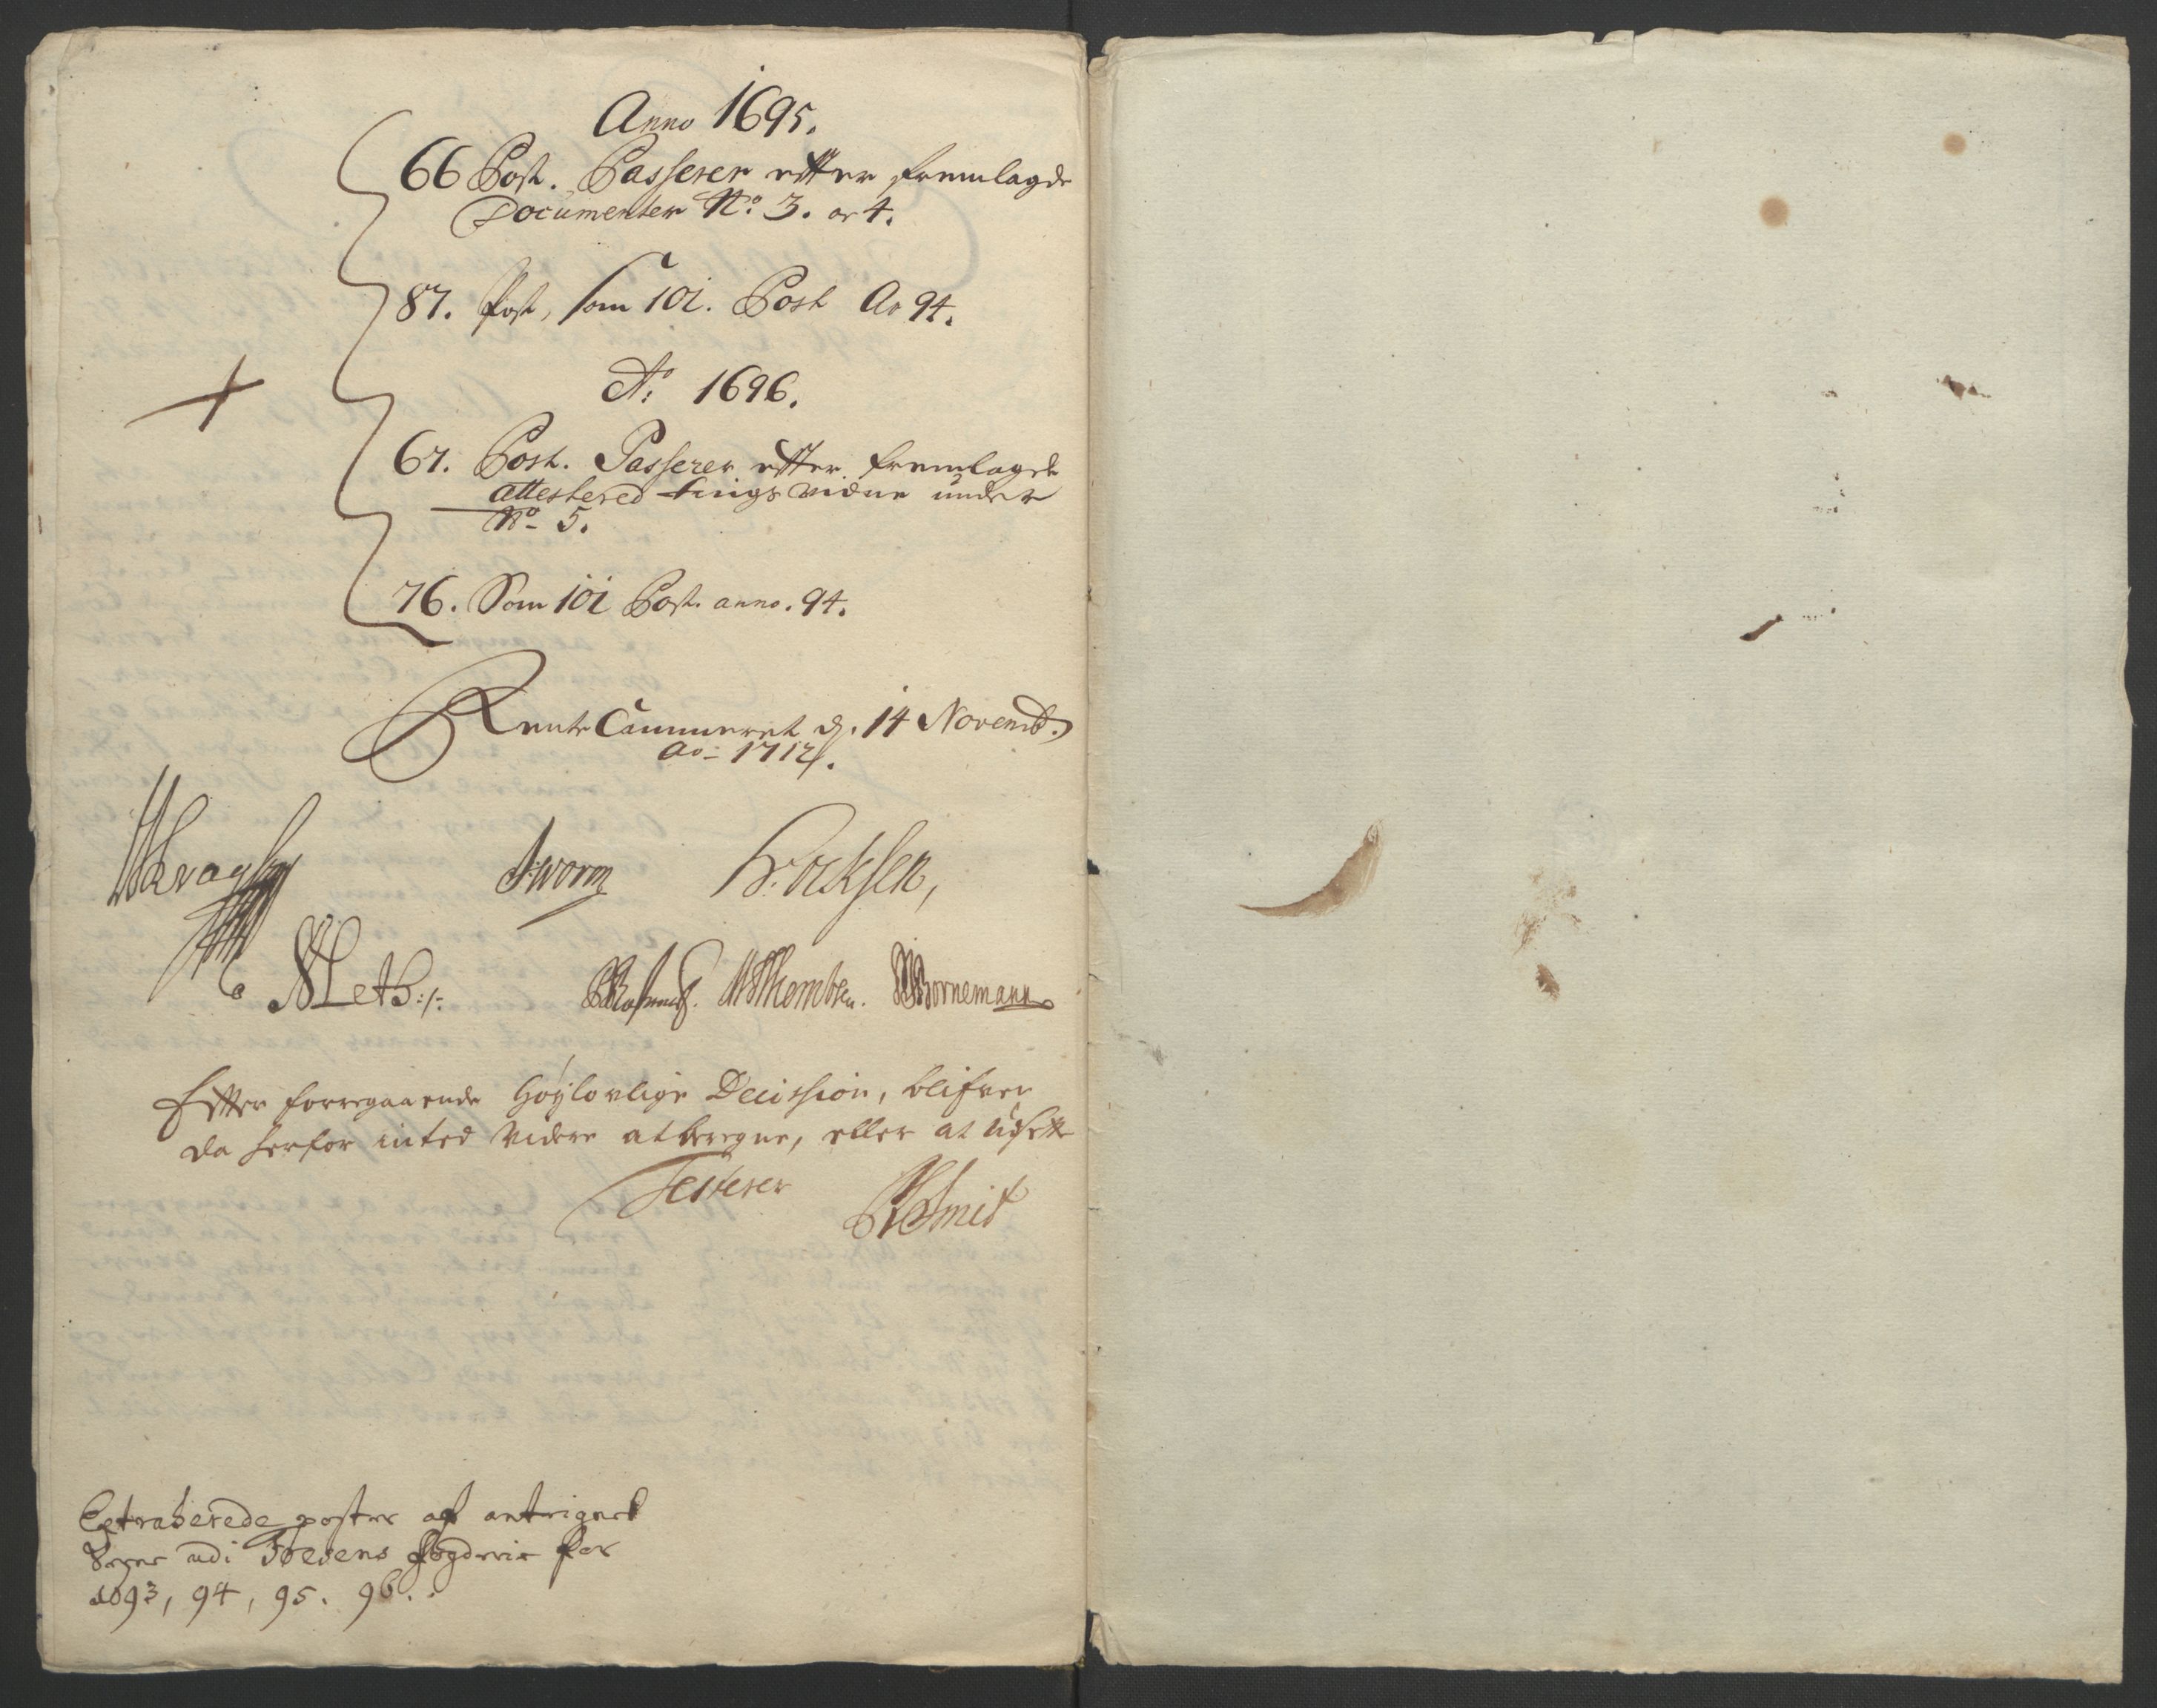 Anno 1695.
66 Post. Passerer efter fremlagde
Documenter No. 3. or 4.
87. Post, som 101. Post Ao 94.
Ao: 1696.
67. Post. Passerer efter fremlagde
attestered tings vidne under
No 5.
76. Som 101 Post. anno. 94.
Rente Cammeret d. 14 Novemb.
Ao: 1712.
Worm
Meth:
Thombsen. Bornemann
Efter foregaaende Höylovlige Decission, blifver
da herfor inted videre at beregne, eller at udsette
Testerer Smid
Extraherede poster af antegnelserne
udi Fosens fogderie for
1693, 94, 95. 96.